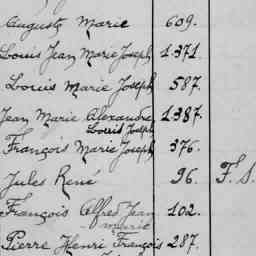 Auguste Marie 609.
Louis Jean Marie Joseph 1.371.
Louis Marie Joseph 587.
Jean Marie Alexandre 1387.
Louis Joseph
François Marie Joseph 376.
Jules René 96. F. S.
François Alfred Jean 102.
Marie
Pierre Henri François 287.